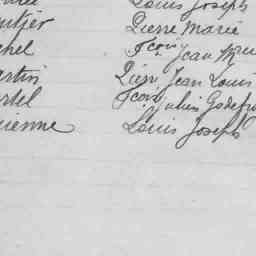 Louis Joseph
utier Pierre Marie
hel Jean M
artin Pierre Jean Louis
rtel Julis Godefr
ienne Louis Joseph